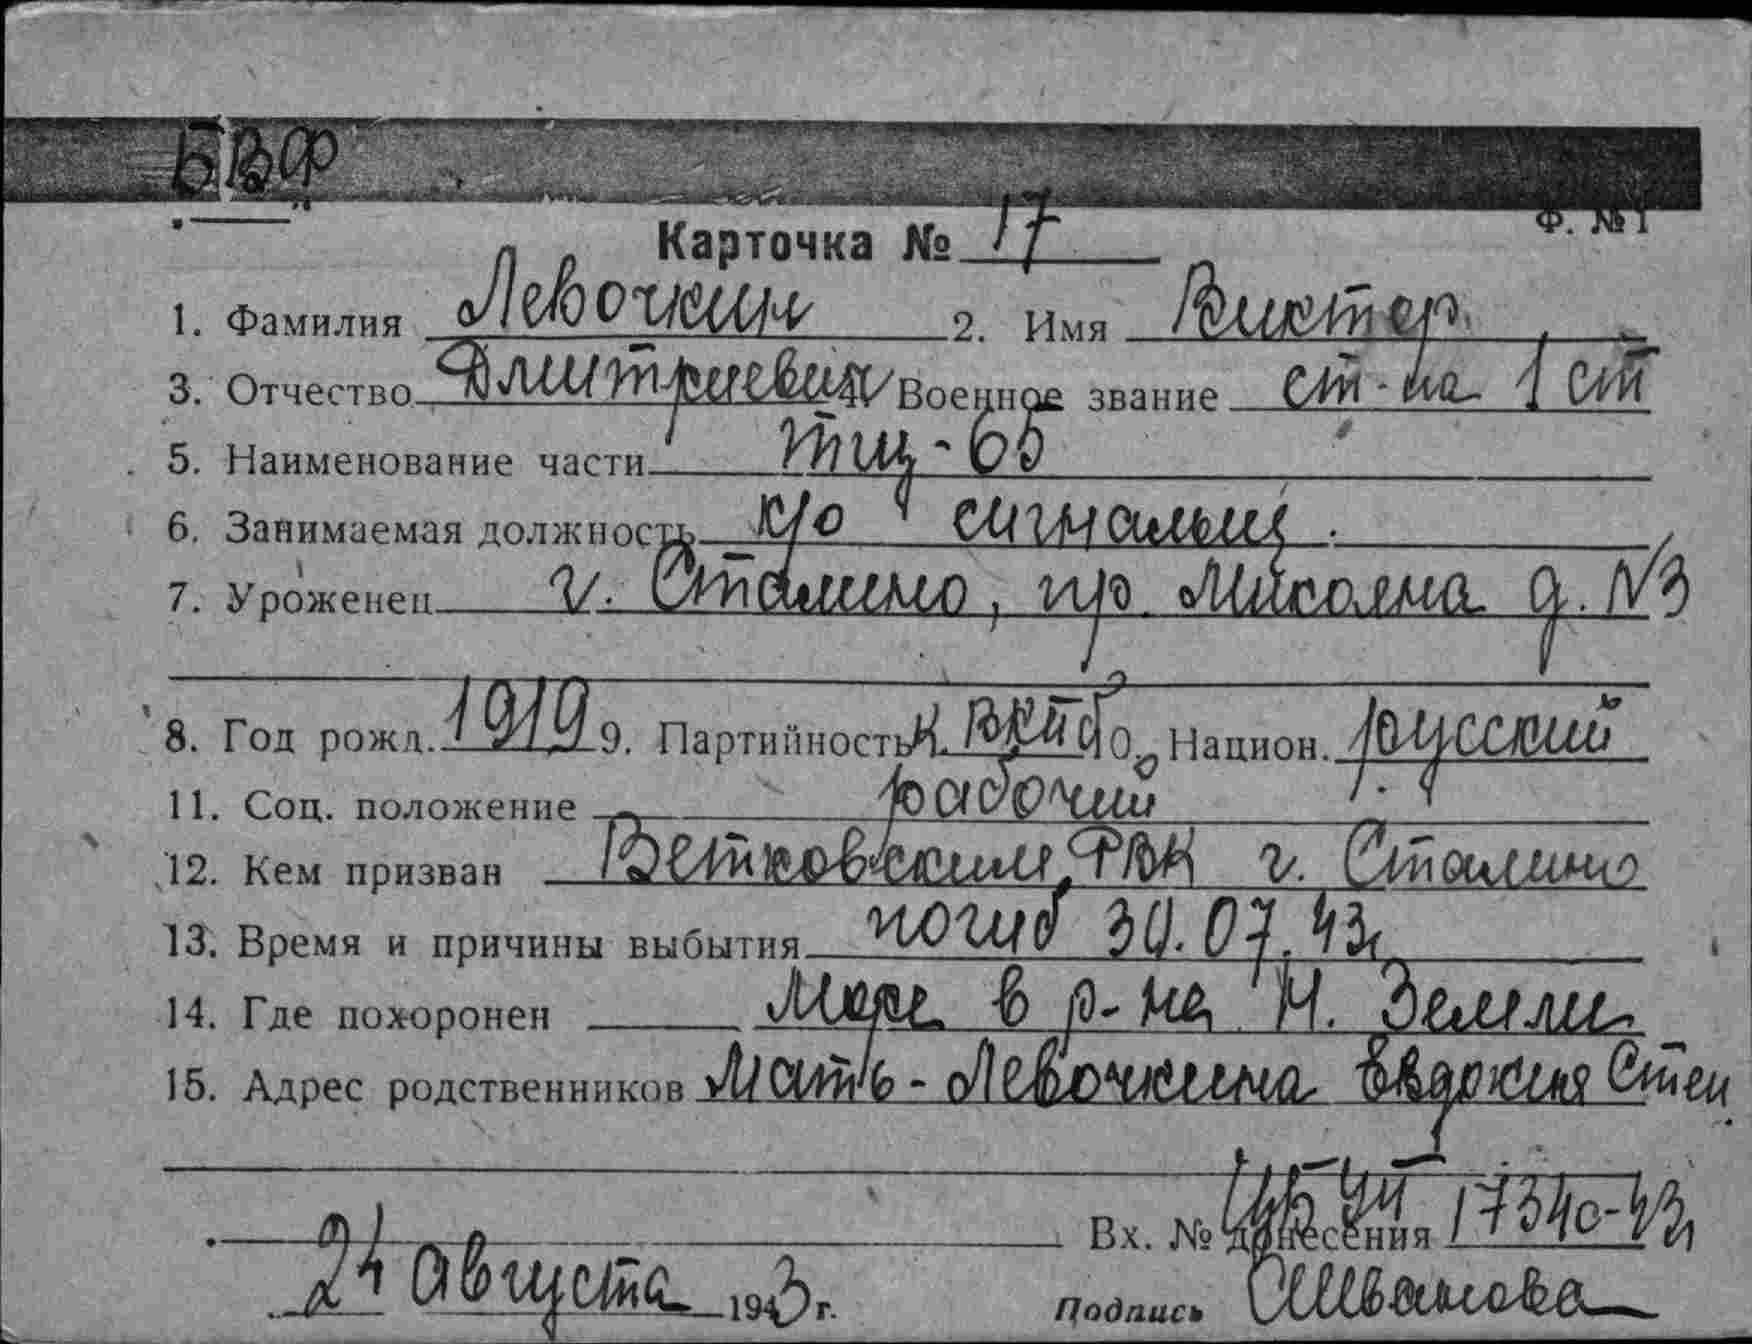 БВФ
Ф. №1
Карточка № 17
1. Фамилия Левочкин 2. Имя Виктор
3. Отчество Дмитриевич Военное звание ст-на 1 ст
5. Наименование части тщ-65
6. Занимаемая должность к/о сигнальщ.
7. Уроженец г. Сталино, пр. Микояна д. №3
8. Год рожд. 1919 9. Партийность К. ВКПб 10. Национ. русский
11. Соц. положение рабочий
12. Кем призван Ветковским РВК г. Сталино
13. Время и причины выбытия погиб 30.07.43г
14. Где похоронен Море в р-не Н. Земли
15. Адрес родственников Мать - Левочкина Евдокия Степ
Вх. № донесения 1734с-43г
24 августа 1943 г. Подпись